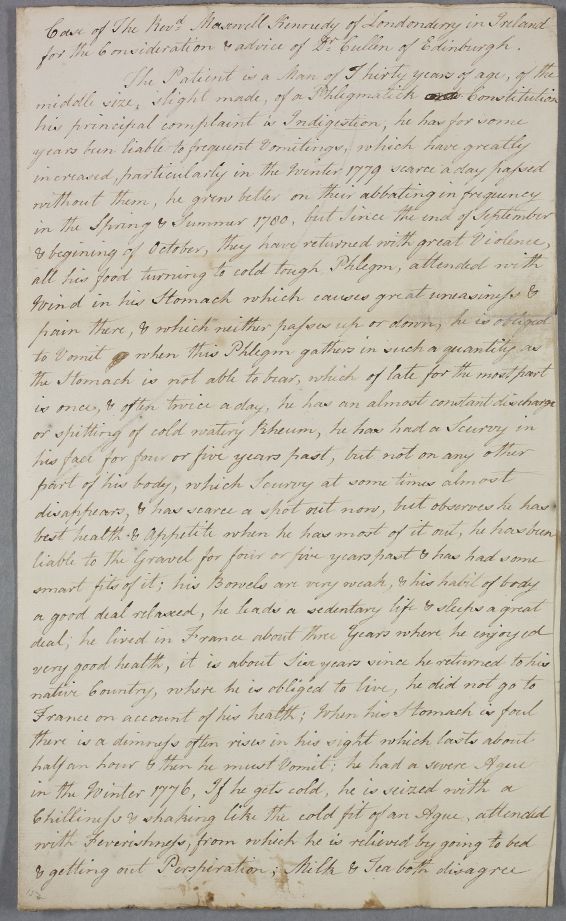 Case of The Revd. Maxwell Kennedy of Londonderry in Ireland
for the Consideration & advice of Dr. Cullen of Edinburgh.
The Patient is a Man of Thirty years of age, of the
middle size, slight made, of a Phlegmatick Constitution
his principal complaint is Indigestion, he has for some
years been liable to frequent Vomitings, which have greatly
increased, particularly in the Winter 1779 scarce a day passed
without them, he grew better on their abbating in frequency
in the Spring & Summer 1780, but Since the end of September
& begining of October, they have returned with great Violence,
all his food turning to cold tough Phlegm, attended with
Wind in his Stomach which causes great uneasiness &
pain there, & which neither passes up or down, he is obliged
to Vomit when this Phlegm gathers in such a quantity as
the Stomach is not able to bear, which of late for the most part
is once, & often twice a day, he has an almost constant discharge
or spitting of cold watery Rheum, he has had a Scurvy in
his face for four or five years past, but not on any other
part of his body, which Scurvy at some times almost
disappears, & has scarce a spot out now, but observes he has
best health & Appetite when he has most of it out, he has been
liable to the Gravel for four or five years past & has had some
smart fits of it; his Bowels are very weak, & his habit of body
a good deal relaxed, he leads a sedentary life & sleeps a great
deal; he lived in France about three Years where he enjoyed
very good health, it is about Six years since he returned to his
native Country, where he is obliged to live, he did not go to
France on account of his health; When his Stomach is foul
there is a dimness often rises in his sight which lasts about
half an hour & then he must Vomit; he had a severe Ague
in the Winter 1776, If he gets cold, he is seized with a
Chilliness & shaking like the cold fit of an Ague, attended
with Feverishness, from which he is relieved by going to bed
& getting out Perspiration; Milk & Tea both disagree